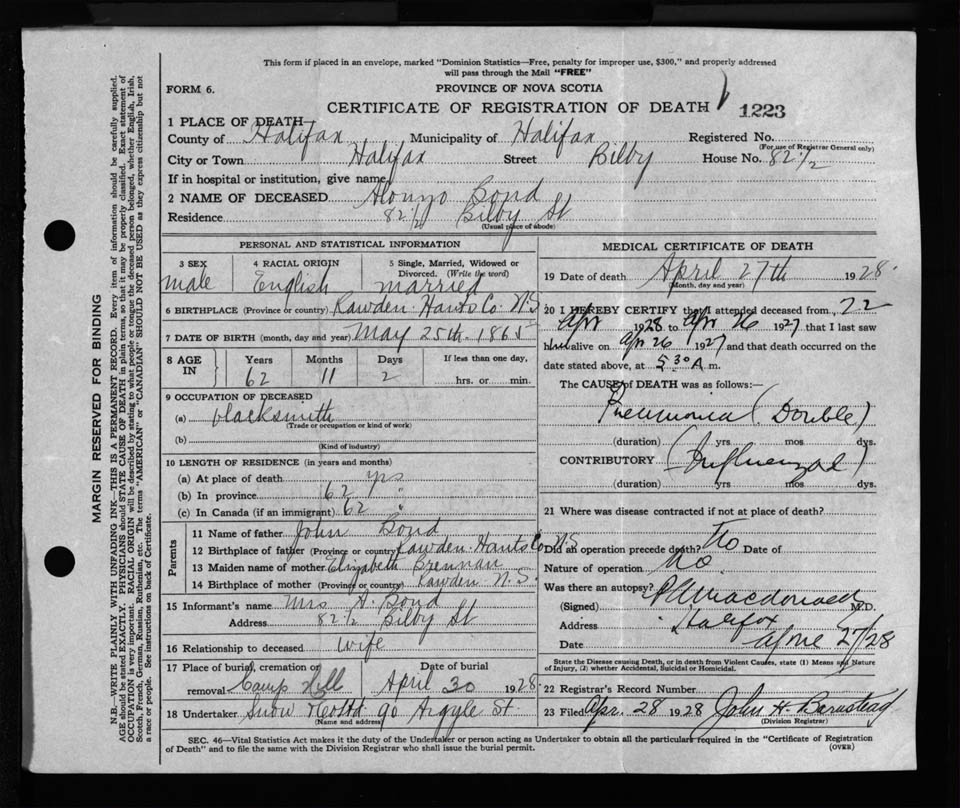 This form if placed in an envelope, marked "Dominion Statistics—Free, penalty for improper use, $300," and properly addressed
will pass through the Mail "FREE"
FORM 6.
PROVINCE OF NOVA SCOTIA
CERTIFICATE OF REGISTRATION OF DEATH
1223
1 PLACE OF DEATH
County of Halifax Municipality of Halifax Registered No.
(For use of Registrar General only)
City or Town Halifax Street Bilby House No. 82 1/2
If in hospital or institution, give name
2 NAME OF DECEASED Alonzo Bond
Residence 82 1/2 Bilby St
(Usual place of abode)
PERSONAL AND STATISTICAL INFORMATION
3 SEX 4 RACIAL ORIGIN 5 Single, Married, Widowed or
Divorced. (Write the word)
male English married
6 BIRTHPLACE (Province or country) Rawden Hants Co. N.S
7 DATE OF BIRTH (month, day and year) May 25th 1865
8 AGE IN Years Months Days If less than one day,
62 11 2 hrs. or min.
9 OCCUPATION OF DECEASED
(a) blacksmith
(Trade or occupation or kind of work)
(b)
(Kind of industry)
10 LENGTH OF RESIDENCE (in years and months)
(a) At place of death yrs
(b) In province 62 "
(c) In Canada (if an immigrant) 62 "
Parents
11 Name of father John Bond
12 Birthplace of father (Province or country) Rawden Hants Co N.S
13 Maiden name of mother Elizabeth Brennan
14 Birthplace of mother (Province or country) Rawden N.S.
15 Informant's name Mrs A. Bond
Address 82 1/2 Bilby St
16 Relationship to deceased wife
17 Place of burial, cremation or removal Camp Hill
Date of burial April 30 1928
18 Undertaker Snow & Co Ltd 90 Argyle St
(Name and address)
MEDICAL CERTIFICATE OF DEATH
19 Date of death April 27th 1928
(Month, day and year)
20 I HEREBY CERTIFY that I attended deceased from 22
Apr 1928 to Apr 26 1927 that I last saw
him alive on Apr 26 1927 and that death occurred on the
date stated above, at 5 30 A m.
The CAUSE of DEATH was as follows:—
Pneumonia (Double)
(duration) yrs mos dys.
CONTRIBUTORY (Influenzal)
(duration) yrs mos dys.
21 Where was disease contracted if not at place of death?
Did an operation precede death? No Date of
Nature of operation
Was there an autopsy? No.
(Signed) Macdonald M.D.
Address Halifax
Date Apr 27/28
State the Disease causing Death, or in death from Violent Causes, state (1) Means and Nature
of Injury, (2) whether Accidental, Suicidal or Homicidal.
22 Registrar's Record Number
23 Filed Apr. 28 1928 John H. Barnstead
(Division Registrar)
SEC. 46—Vital Statistics Act makes it the duty of the Undertaker or person acting as Undertaker to obtain all the particulars required in the "Certificate of Registration
of Death" and to file the same with the Division Registrar who shall issue the burial permit.
(OVER)
MARGIN RESERVED FOR BINDING
N.B.—WRITE PLAINLY WITH UNFADING INK—THIS IS A PERMANENT RECORD. Every item of information should be carefully supplied.
AGE should be stated EXACTLY. PHYSICIANS should STATE CAUSE OF DEATH in plain terms, so that it may be properly classified. Exact statement of
OCCUPATION is very important. RACIAL ORIGIN will be described by stating to what people or tongue the deceased person belonged, whether English, Irish,
Scotch, French, German, Russian, Ruthenian, etc. The terms "AMERICAN" or "CANADIAN" SHOULD NOT BE USED as they express citizenship but not
a race or people. See instructions on back of Certificate.